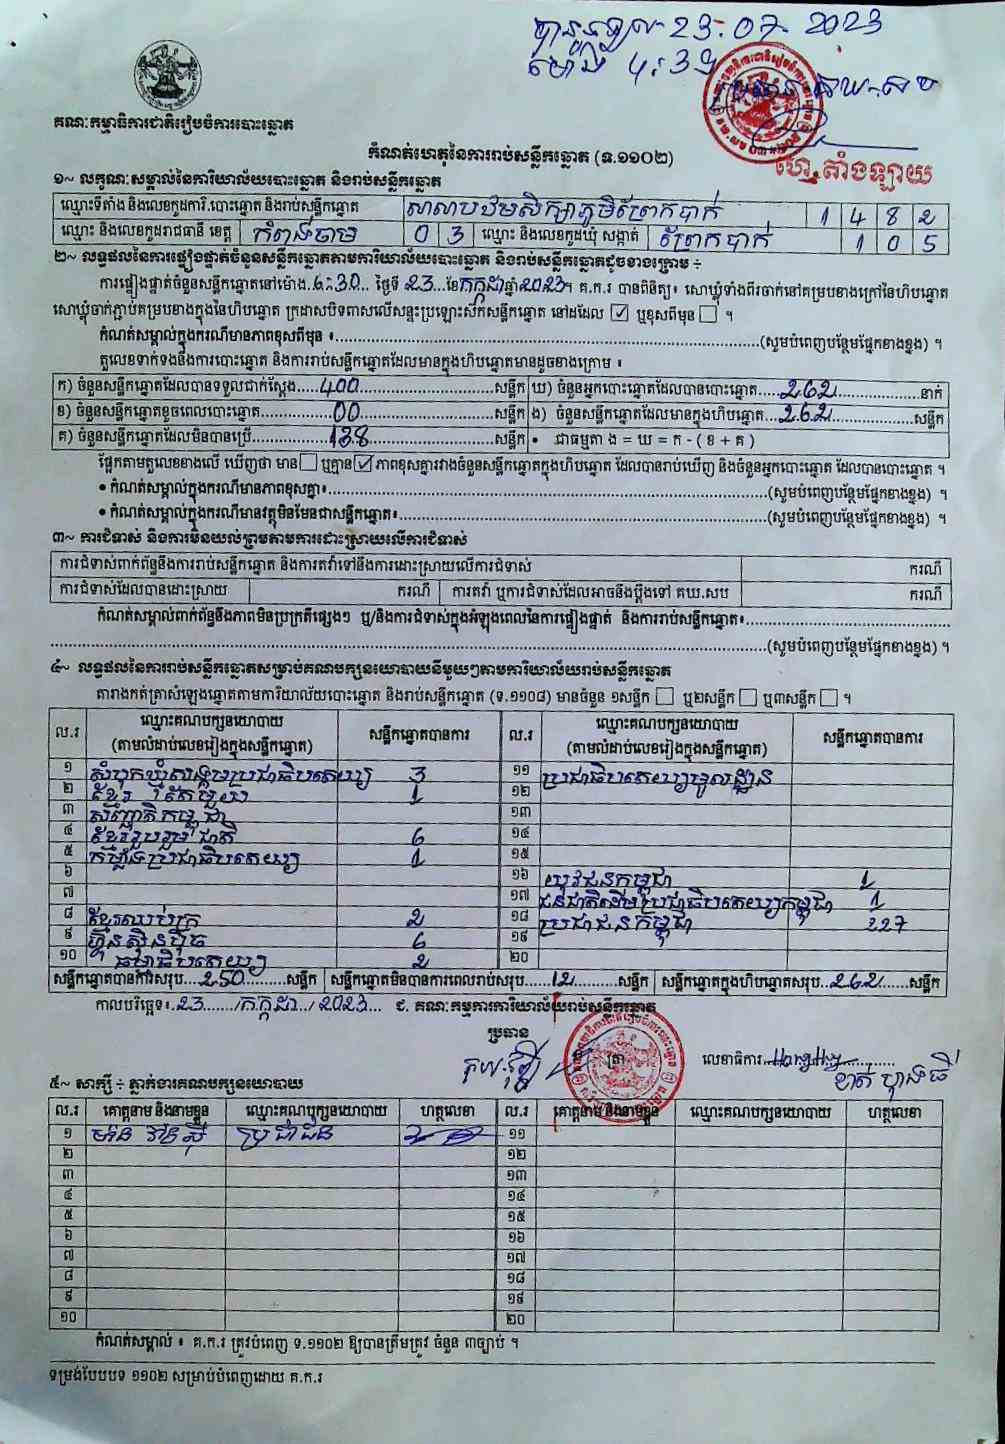 បានទទួល 23-07-2023
ម៉ោង 4:39
ប្រធាន គឃ.សប
គណៈកម្មាធិការជាតិរៀបចំការបោះឆ្នោត
ហេ.តាំងឡាយ
កំណត់ហេតុនៃការរាប់សន្លឹកឆ្នោត (ទ.១១០២)
១~ លក្ខណៈសម្គាល់នៃការិយាល័យបោះឆ្នោត និងរាប់សន្លឹកឆ្នោត
ឈ្មោះទីតាំង និងលេខកូដការិ.បោះឆ្នោត និងរាប់សន្លឹកឆ្នោត សាលាបឋមសិក្សាភូមិព្រែកបាក់ 1 4 8 2
ឈ្មោះ និងលេខកូដរាជធានី ខេត្ត កំពង់ចាម 0 3 ឈ្មោះ និងលេខកូដឃុំ សង្កាត់ ព្រែកបាក់ 1 0 5
២~ លទ្ធផលនៃការផ្ទៀងផ្ទាត់ចំនួនសន្លឹកឆ្នោតតាមការិយាល័យបោះឆ្នោត និងរាប់សន្លឹកឆ្នោតដូចខាងក្រោម ÷
ការផ្ទៀងផ្ទាត់ចំនួនសន្លឹកឆ្នោតនៅម៉ោង.6:30... ថ្ងៃទី 23...ខែកក្កដាឆ្នាំ2023។ គ.ក.រ បានពិនិត្យ៖ សោឃ្លុំទាំងពីរចាក់នៅគម្របខាងក្រៅនៃហិបឆ្នោត
សោឃ្លុំចាក់ភ្ជាប់គម្របខាងក្នុងនៃហិបឆ្នោត ក្រដាសបិទពាសលើសន្ទះប្រឡោះស៊កសន្លឹកឆ្នោត នៅដដែល ☑ ឬខុសពីមុន ☐ ។
កំណត់សម្គាល់ក្នុងករណីមានភាពខុសពីមុន ៖...(សូមបំពេញបន្ថែមផ្នែកខាងខ្នង) ។
តួលេខទាក់ទងនឹងការបោះឆ្នោត និងការរាប់សន្លឹកឆ្នោតដែលមានក្នុងហិបឆ្នោតមានដូចខាងក្រោម ៖
ក) ចំនួនសន្លឹកឆ្នោតដែលបានទទួលជាក់ស្តែង....400....សន្លឹក ឃ) ចំនួនអ្នកបោះឆ្នោតដែលបានបោះឆ្នោត....262....នាក់
ខ) ចំនួនសន្លឹកឆ្នោតខូចពេលបោះឆ្នោត....00....សន្លឹក ង) ចំនួនសន្លឹកឆ្នោតដែលមានក្នុងហិបឆ្នោត....262....សន្លឹក
គ) ចំនួនសន្លឹកឆ្នោតដែលមិនបានប្រើ....138....សន្លឹក • ជាធម្មតា ង = ឃ = ក - ( ខ + គ )
ផ្អែកតាមតួលេខខាងលើ ឃើញថា មាន☐ ឬគ្មាន☑ ភាពខុសគ្នារវាងចំនួនសន្លឹកឆ្នោតក្នុងហិបឆ្នោត ដែលបានរាប់ឃើញ និងចំនួនអ្នកបោះឆ្នោត ដែលបានបោះឆ្នោត ។
• កំណត់សម្គាល់ក្នុងករណីមានភាពខុសគ្នា៖...(សូមបំពេញបន្ថែមផ្នែកខាងខ្នង) ។
• កំណត់សម្គាល់ក្នុងករណីមានវត្ថុមិនមែនជាសន្លឹកឆ្នោត៖...(សូមបំពេញបន្ថែមផ្នែកខាងខ្នង) ។
៣~ ការជំទាស់ និងការមិនយល់ព្រមតាមការដោះស្រាយលើការជំទាស់
ការជំទាស់ពាក់ព័ន្ធនឹងការរាប់សន្លឹកឆ្នោត និងការតវ៉ាទៅនឹងការដោះស្រាយលើការជំទាស់ ករណី
ការជំទាស់ដែលបានដោះស្រាយ ករណី ការតវ៉ា ឬការជំទាស់ដែលអាចនឹងប្តឹងទៅ គឃ.សប ករណី
កំណត់សម្គាល់ពាក់ព័ន្ធនឹងភាពមិនប្រក្រតីផ្សេងៗ ឬ/និងការជំទាស់ក្នុងអំឡុងពេលនៃការផ្ទៀងផ្ទាត់ និងការរាប់សន្លឹកឆ្នោត៖...
...(សូមបំពេញបន្ថែមផ្នែកខាងខ្នង) ។
៤~ លទ្ធផលនៃការរាប់សន្លឹកឆ្នោតសម្រាប់គណបក្សនយោបាយនីមួយៗតាមការិយាល័យរាប់សន្លឹកឆ្នោត
តារាងកត់ត្រាសំឡេងឆ្នោតតាមការិយាល័យបោះឆ្នោត និងរាប់សន្លឹកឆ្នោត (ទ.១១០៨) មានចំនួន ១សន្លឹក ☐ ឬ២សន្លឹក ☐ ឬ៣សន្លឹក ☐ ។
ល.រ ឈ្មោះគណបក្សនយោបាយ (តាមលំដាប់លេខរៀងក្នុងសន្លឹកឆ្នោត) សន្លឹកឆ្នោតបានការ ល.រ ឈ្មោះគណបក្សនយោបាយ (តាមលំដាប់លេខរៀងក្នុងសន្លឹកឆ្នោត) សន្លឹកឆ្នោតបានការ
១ សំបុកឃ្មុំសង្គមប្រជាធិបតេយ្យ 3 ១១ ប្រជាធិបតេយ្យមូលដ្ឋាន
២ ខ្មែរតែមួយ 1 ១២
៣ សញ្ជាតិកម្ពុជា ១៣
៤ ខ្មែររួបរួមជាតិ 6 ១៤
៥ កម្លាំងប្រជាធិបតេយ្យ 1 ១៥
៦ ១៦ យុវជនកម្ពុជា 1
៧ ១៧ ជនជាតិដើមប្រជាធិបតេយ្យកម្ពុជា 1
៨ ខ្មែរឈប់ក្រ 2 ១៨ ប្រជាជនកម្ពុជា 227
៩ ហ៊្វុនស៊ិនប៉ិច 6 ១៩
១០ ធម្មាធិបតេយ្យ 2 ២០
សន្លឹកឆ្នោតបានការសរុប...250...សន្លឹក សន្លឹកឆ្នោតមិនបានការពេលរាប់សរុប...12...សន្លឹក សន្លឹកឆ្នោតក្នុងហិបឆ្នោតសរុប..262...សន្លឹក
កាលបរិច្ឆេទ៖.23..../កក្កដា../2023... ជ. គណៈកម្មការការិយាល័យរាប់សន្លឹកឆ្នោត
ប្រធាន
ត្រា លេខាធិការ
៥~ សាក្សី ÷ ភ្នាក់ងារគណបក្សនយោបាយ
ល.រ គោត្តនាម និងនាមខ្លួន ឈ្មោះគណបក្សនយោបាយ ហត្ថលេខា ល.រ គោត្តនាម និងនាមខ្លួន ឈ្មោះគណបក្សនយោបាយ ហត្ថលេខា
១ ប្រជាជន ១១
២ ១២
៣ ១៣
៤ ១៤
៥ ១៥
៦ ១៦
៧ ១៧
៨ ១៨
៩ ១៩
១០ ២០
កំណត់សម្គាល់ ៖ គ.ក.រ ត្រូវបំពេញ ទ.១១០២ ឱ្យបានត្រឹមត្រូវ ចំនួន ៣ច្បាប់ ។
ទម្រង់បែបបទ ១១០២ សម្រាប់បំពេញដោយ គ.ក.រ